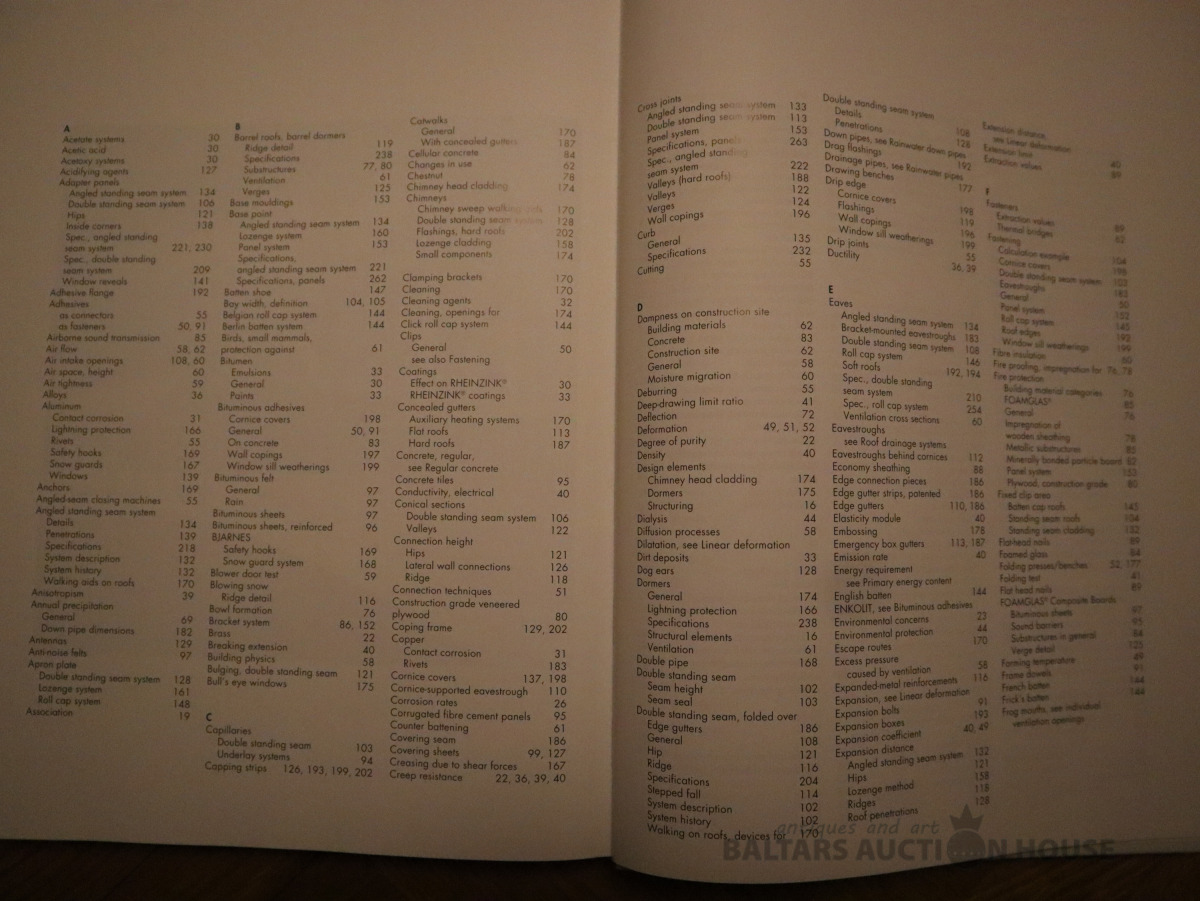 A
Acetate systems 30
Acetic acid 30
Acetoxy systems 30
Acidifying agents 127
Adapter panels
Angled standing seam system 134
Double standing seam system 106
Hips 121
Inside corners 138
Spec., angled standing
seam system 221, 230
Spec., double standing
seam system 209
Window reveals 141
Adhesive flange 192
Adhesives
as connectors 55
as fasteners 50, 91
Airborne sound transmission 85
Air flow 58, 62
Air intake openings 108, 60
Air space, height 60
Air tightness 59
Alloys 36
Aluminum
Contact corrosion 31
Lightning protection 166
Rivets 55
Safety hooks 169
Snow guards 167
Windows 139
Anchors 169
Angled-seam closing machines 55
Angled standing seam system
Details 134
Penetrations 139
Specifications 218
System description 132
System history 132
Walking aids on roofs 170
Anisotropism 39
Annual precipitation
General 69
Down pipe dimensions 182
Antennas 129
Anti-noise felts 97
Apron plate
Double standing seam system 128
Lozenge system 161
Roll cap system 148
Association 19
B
Barrel roofs, barrel dormers
Ridge detail 119
Specifications 238
Substructures 77, 80
Ventilation 61
Verges 125
Base mouldings 153
Base point
Angled standing seam system 134
Lozenge system 160
Panel system 153
Specifications,
angled standing seam system 221
Specifications, panels 262
Batten shoe 147
Bay width, definition 104, 105
Belgian roll cap system 144
Berlin batten system 144
Birds, small mammals,
protection against 61
Bitumen
Emulsions 33
General 30
Paints 33
Bituminous adhesives
Cornice covers 198
General 50, 91
On concrete 83
Wall copings 197
Window sill weatherings 199
Bituminous felt
General 97
Rain 97
Bituminous sheets 97
Bituminous sheets, reinforced 96
BJARNES
Safety hooks 169
Snow guard system 168
Blower door test 59
Blowing snow
Ridge detail 116
Bowl formation 76
Bracket system 86, 152
Brass 22
Breaking extension 40
Building physics 58
Bulging, double standing seam 121
Bull's eye windows 175
C
Capillaries
Double standing seam 103
Underlay systems 94
Capping strips 126, 193, 199, 202
Catwalks
General 170
With concealed gutters 187
Cellular concrete 84
Changes in use 62
Chestnut 78
Chimney head cladding 174
Chimneys
Chimney sweep walking 170
Double standing seam system 128
Flashings, hard roofs 202
Lozenge cladding 158
Small components 174
Clamping brackets 170
Cleaning 170
Cleaning agents 32
Cleaning, openings for 174
Click roll cap system 144
Clips
General 50
see also Fastening
Coatings
Effect on RHEINZINK® 30
RHEINZINK® coatings 33
Concealed gutters
Auxiliary heating systems 170
Flat roofs 113
Hard roofs 187
Concrete, regular,
see Regular concrete
Concrete tiles 95
Conductivity, electrical 40
Conical sections
Double standing seam system 106
Valleys 122
Connection height
Hips 121
Lateral wall connections 126
Ridge 118
Connection techniques 51
Construction grade veneered
plywood 80
Coping frame 129, 202
Copper
Contact corrosion 31
Rivets 183
Cornice covers 137, 198
Cornice-supported eavestrough 110
Corrosion rates 26
Corrugated fibre cement panels 95
Counter battening 61
Covering seam 186
Covering sheets 99, 127
Creasing due to shear forces 167
Creep resistance 22, 36, 39, 40
Cross joints
Angled standing seam system 133
Double standing seam system 113
Panel system 153
Specifications, panels 263
Spec., angled standing
seam system 222
Valleys (hard roofs) 188
Valleys 122
Verges 124
Wall copings 196
Curb
General 135
Specifications 232
Cutting 55
D
Dampness on construction site
Building materials 62
Concrete 83
Construction site 62
General 58
Moisture migration 60
Deburring 55
Deep-drawing limit ratio 41
Deflection 72
Deformation 49, 51, 52
Degree of purity 22
Density 40
Design elements
Chimney head cladding 174
Dormers 175
Structuring 16
Dialysis 44
Diffusion processes 58
Dilatation, see Linear deformation
Dirt deposits 33
Dog ears 128
Dormers
General 174
Lightning protection 166
Specifications 238
Structural elements 16
Ventilation 61
Double pipe 168
Double standing seam
Seam height 102
Seam seal 103
Double standing seam, folded over
Edge gutters 186
General 108
Hip 121
Ridge 116
Specifications 204
Stepped fall 114
System description 102
System history 102
Walking on roofs, devices for 170
Double standing seam system
Details 108
Penetrations 128
Down pipes, see Rainwater down pipes
Drag flashings 192
Drainage pipes, see Rainwater pipes
Drawing benches 177
Drip edge
Cornice covers 198
Flashings 119
Wall copings 196
Window sill weatherings 199
Drip joints 55
Ductility 36, 39
E
Eaves
Angled standing seam system 134
Bracket-mounted eavestroughs 183
Double standing seam system 108
Roll cap system 146
Soft roofs 192, 194
Spec., double standing
seam system 210
Spec., roll cap system 254
Ventilation cross sections 60
Eavestroughs
see Roof drainage systems
Eavestroughs behind cornices 112
Economy sheathing 88
Edge connection pieces 186
Edge gutter strips, patented 186
Edge gutters 110, 186
Elasticity module 40
Embossing 178
Emergency box gutters 113, 187
Emission rate 40
Energy requirement
see Primary energy content
English batten 144
ENKOLIT, see Bituminous adhesives
Environmental concerns 23
Environmental protection 44
Escape routes 170
Excess pressure
caused by ventilation 58
Expanded-metal reinforcements 116
Expansion, see Linear deformation
Expansion bolts 91
Expansion boxes 193
Expansion coefficient 40, 49
Expansion distance
Angled standing seam system 132
Hips 121
Lozenge method 158
Ridges 118
Roof penetrations 128
Extension distance,
see Linear deformation
Extension limit 40
Extraction values 89
F
Fasteners
Extraction values 89
Thermal bridges 62
Fastening
Calculation example 104
Cornice covers 198
Double standing seam system 103
Eavestroughs 183
General 50
Panel system 152
Roll cap system 145
Roof edges 192
Window sill weatherings 199
Fibre insulation 60
Fire proofing, impregnation for 76, 78
Fire protection
Building material categories 76
FOAMGLAS® 85
General 76
Impregnation of
wooden sheathing 78
Metallic substructures 85
Minerally bonded particle board 82
Panel system 153
Plywood, construction grade 80
Fixed clip area
Batten cap roofs 145
Standing seam roofs 104
Standing seam cladding 132
Flat-head nails 89
Foamed glass 84
Folding presses/benches 52, 177
Folding test 41
Flat head nails 89
FOAMGLAS® Composite Boards
Bituminous sheets 97
Sound barriers 95
Substructures in general 84
Verge detail 125
Forming temperature 49
Frame dowels 91
French batten 144
Frick's batten 144
Frog mouths, see individual
ventilation openings
antiques and art
BALTARS AUCTION HOUSE